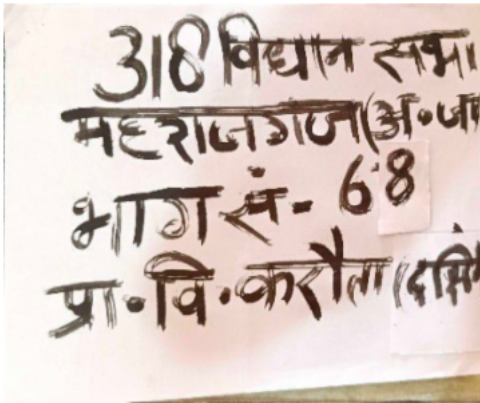 318 विधान सभा
महराजगंज (अ॰जा
भाग सं॰- 68
प्रा॰वि॰करौता (दक्षि